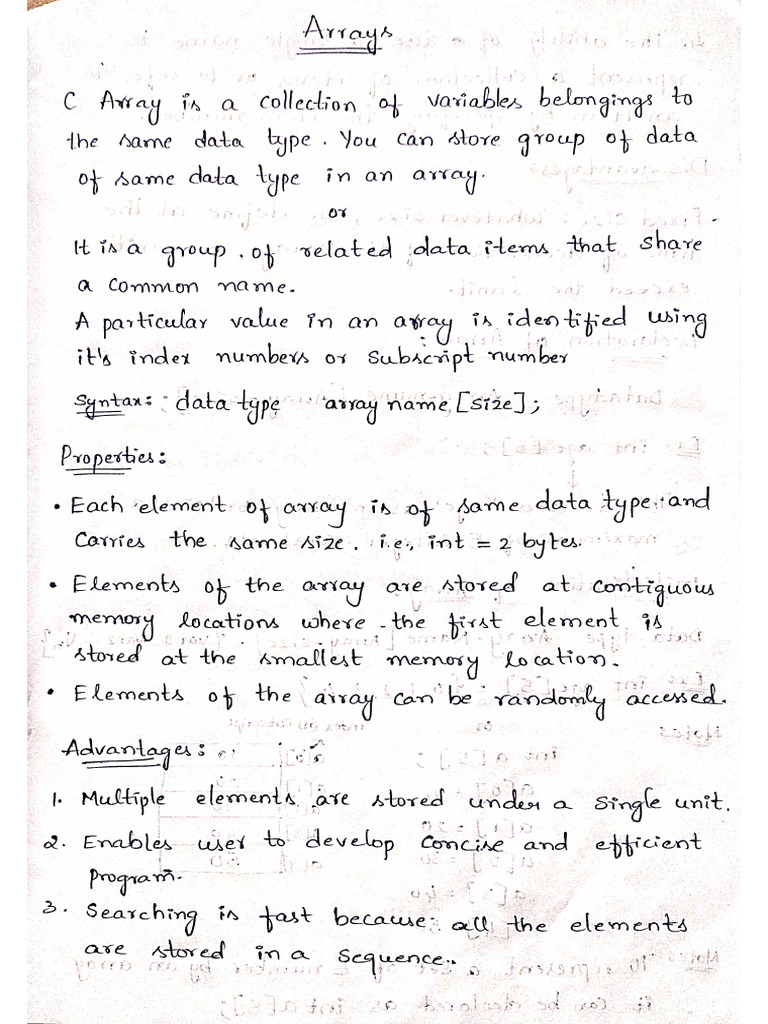 Arrays
C Array is a collection of variables belongings to
the same data type. You can store group of data
of same data type in an array.
or
It is a group of related data items that share
a common name.
A particular value in an array is identified using
it's index numbers or subscript number
Syntax: data type array name [size];
Properties:
• Each element of array is of same data type and
Carries the same size. i.e., int = 2 bytes.
• Elements of the array are stored at contiguous
memory locations where the first element is
stored at the smallest memory location.
• Elements of the array can be randomly accessed.
Advantages:
1. Multiple elements are stored under a single unit.
2. Enables user to develop concise and efficient
program.
3. Searching is fast because all the elements
are stored in a sequence.